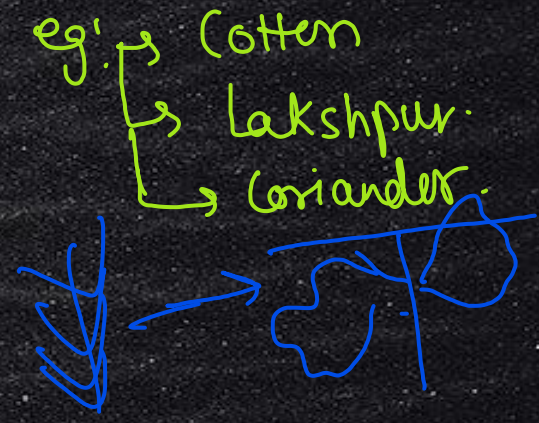 eg:→ Cotten
→ Lakshpur.
→ Coriander.